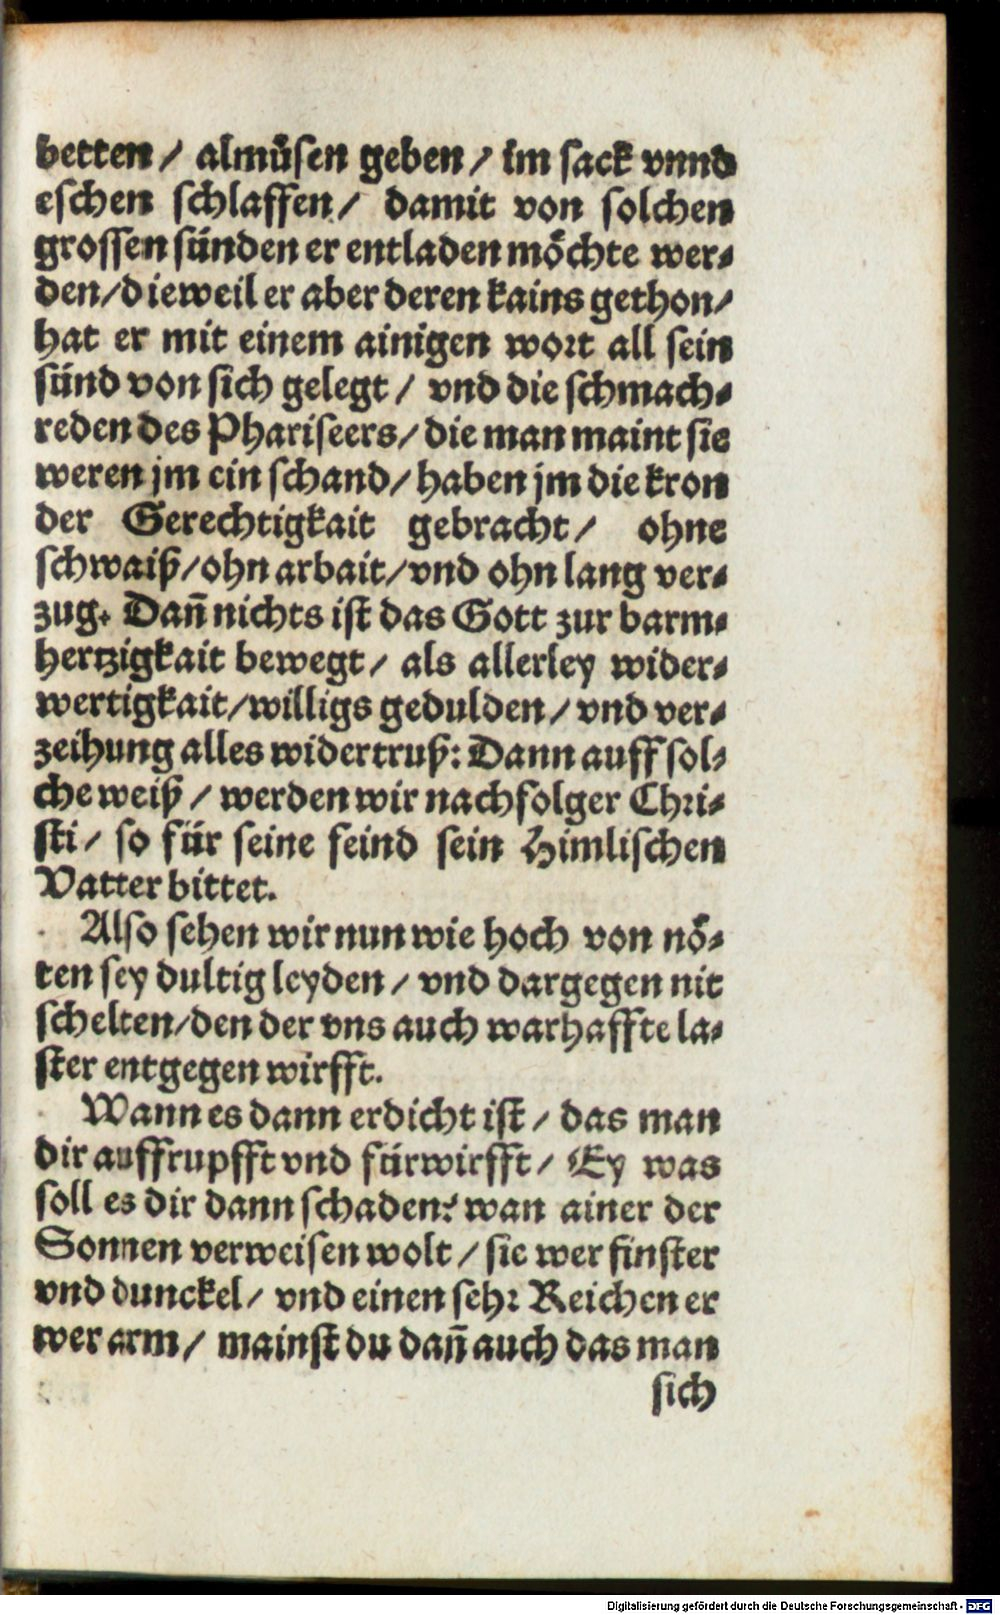 betten / almuͤsen geben / im sack vnnd
eschen schlaffen / damit von solchen
grossen sünden er entladen moͤchte wer⸗
den / dieweil er aber deren kains gethon /
hat er mit einem ainigen wort all sein
sünd von sich gelegt / vnd die schmach⸗
reden des Phariseers / die man maint sie
weren jm ein schand / haben jm die kron
der Gerechtigkait gebracht / ohne
schwaiß / ohn arbait / vnd ohn lang ver⸗
zug. Dañ nichts ist das Gott zur barm⸗
hertzigkait bewegt / als allerley wider⸗
wertigkait / willigs gedulden / vnd ver⸗
zeihung alles widertruß: Dann auff sol⸗
che weiß / werden wir nachfolger Chri⸗
sti / so für seine feind sein Himlischen
Vatter bittet.
Also sehen wir nun wie hoch von noͤ⸗
ten sey dultig leyden / vnd dargegen nit
schelten / den der vns auch warhaffte la⸗
ster entgegen wirfft.
Wann es dann erdicht ist / das man
dir auffrupfft vnd fürwirfft / Ey was
soll es dir dann schaden? wan ainer der
Sonnen verweisen wolt / sie wer finster
vnd dunckel / vnd einen sehr Reichen er
wer arm / mainst du dañ auch das man
sich
Digitalisierung gefördert durch die Deutsche Forschungsgemeinschaft - DFG